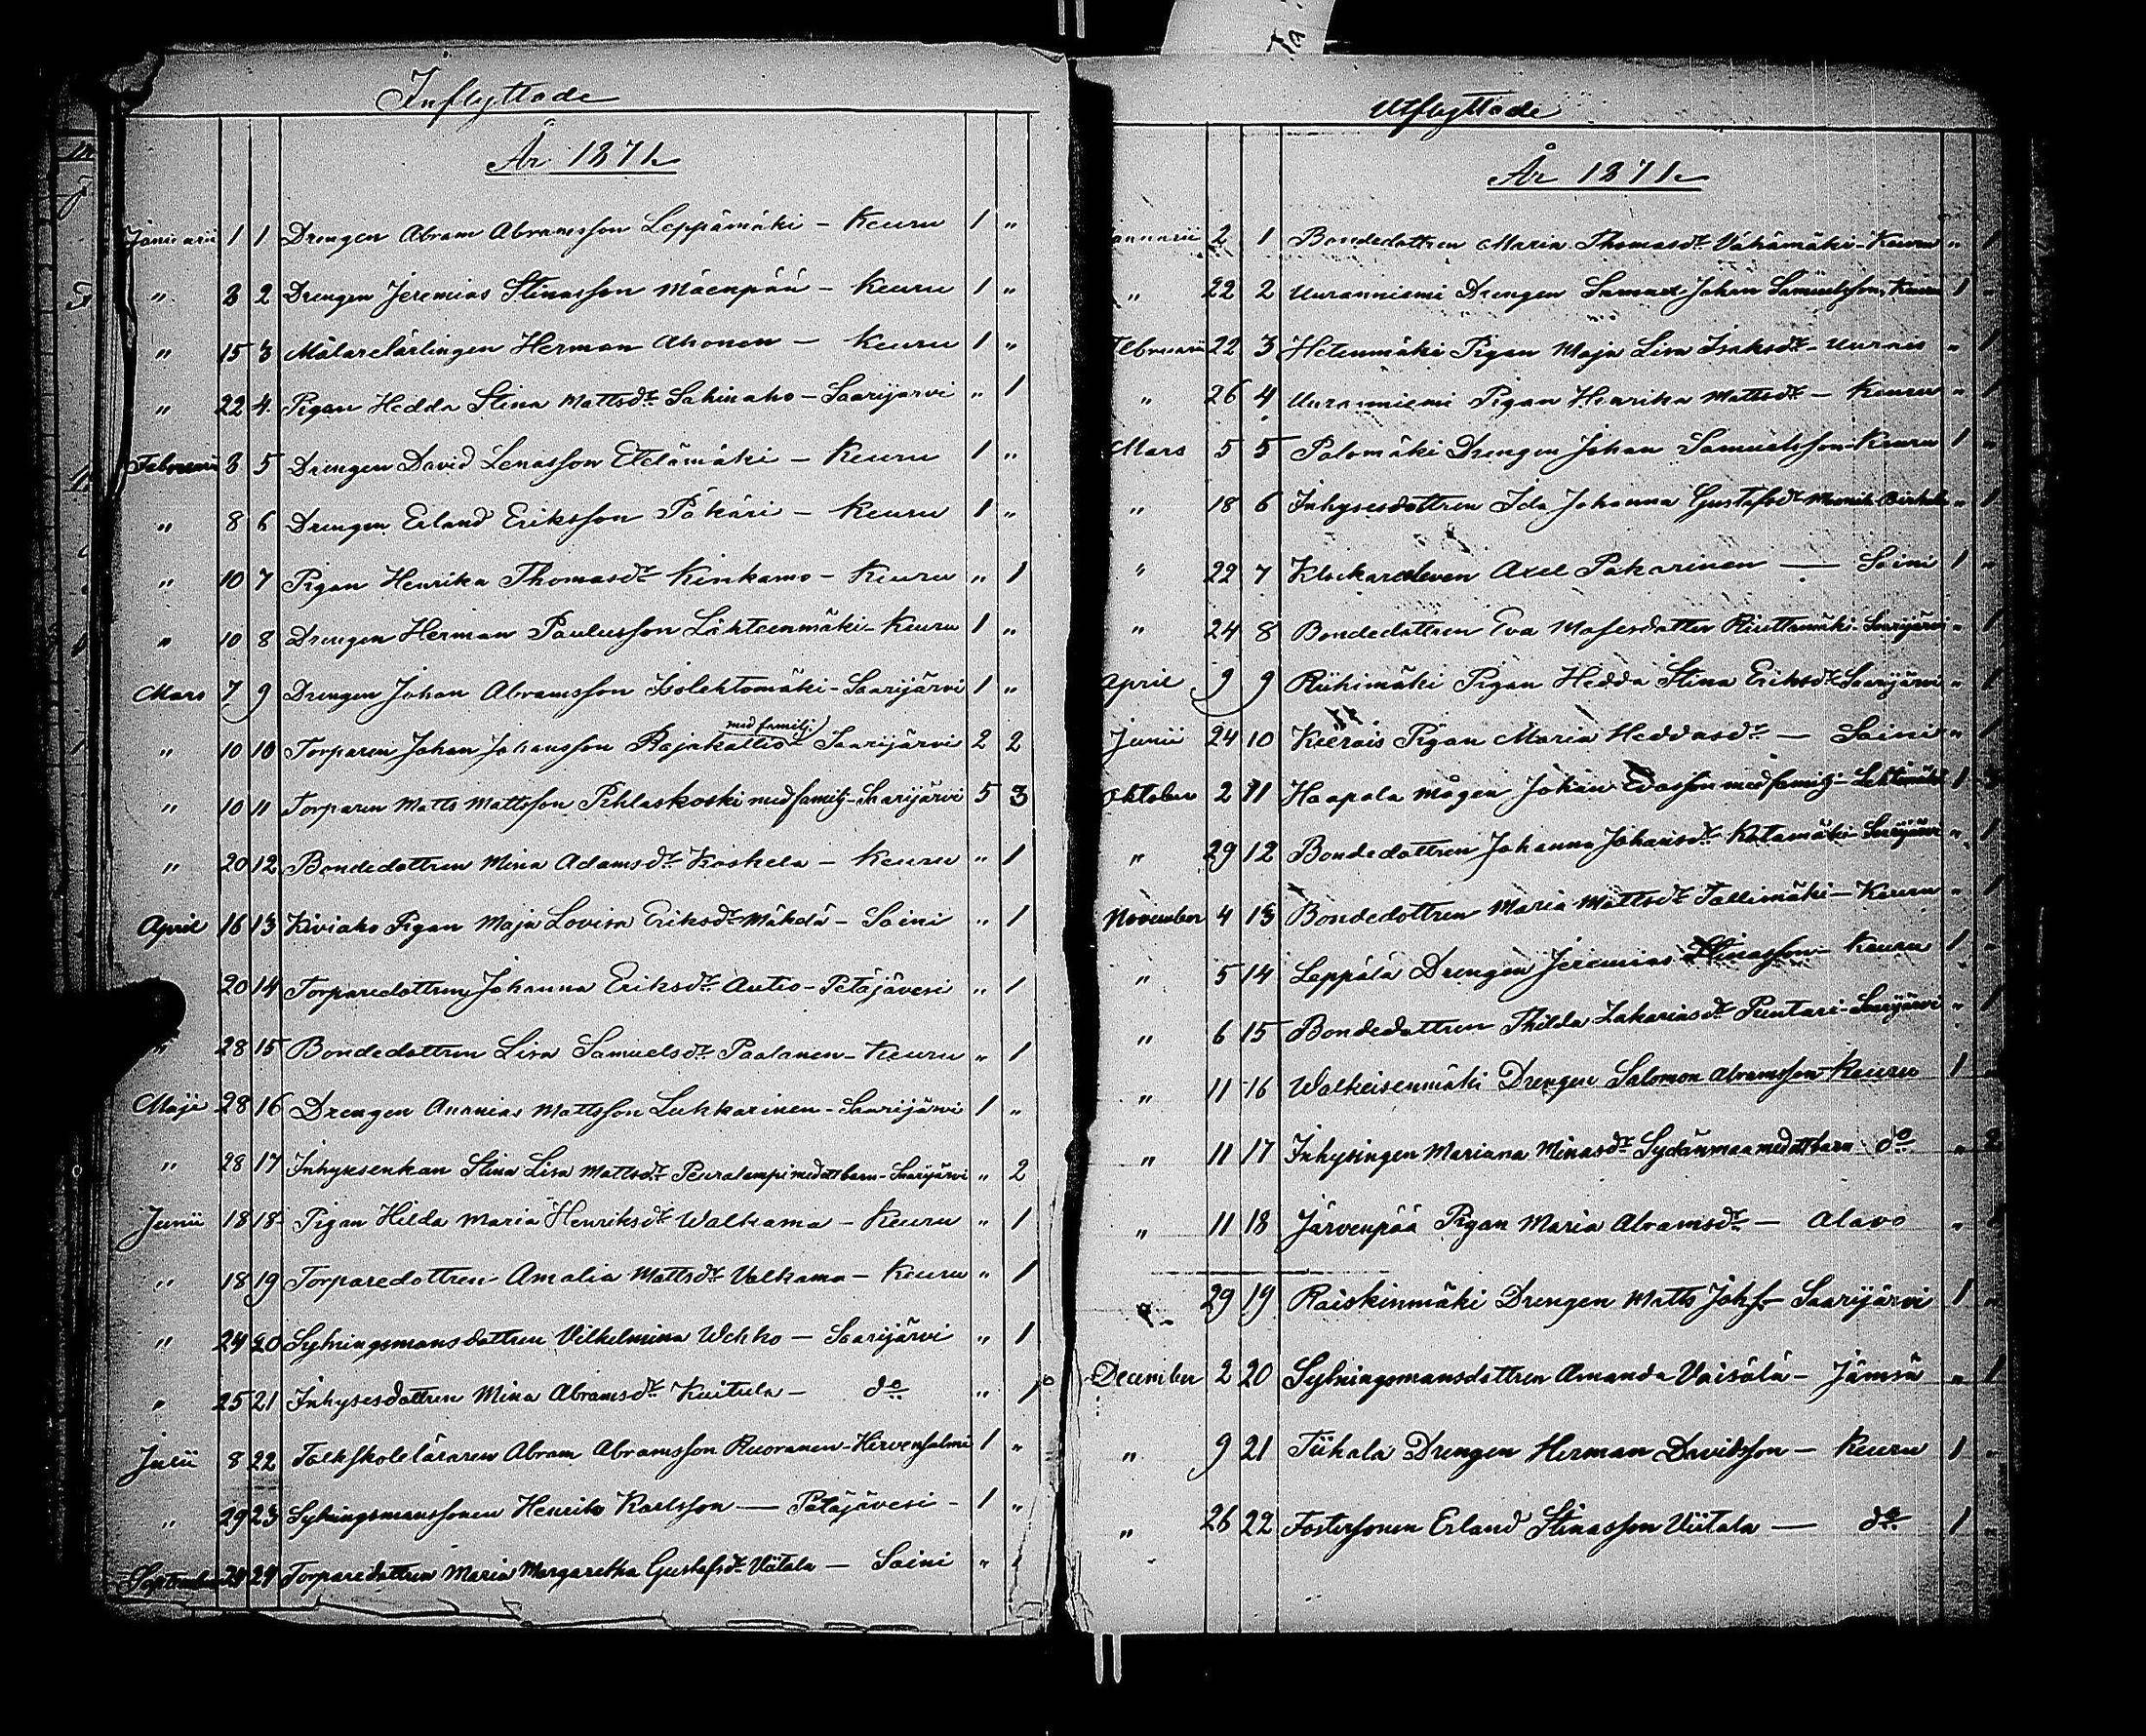 Inflyttade
År 1871
Januarii 1 1 Drengen Abram Abramsson Leppämäki - Keuru 1 "
" 8 2 Drengen Jeremias Stinasson Mäenpää - Keuru 1 "
" 15 3 Målarelärlingen Herman Ahonen - Keuru 1 "
" 22 4 Pigan Hedda Stina Mattsdr Sahinaho - Saarijärvi " 1
Februarii 8 5 Drengen David Lenasson Etelämäki - Keuru 1 "
" 8 6 Drengen Erland Eriksson Päkäri - Keuru 1 "
" 10 7 Pigan Henrika Thomasdr Kinkamo - Keuru " 1
" 10 8 Drengen Herman Paulusson Lähteenmäki - Keuru 1 "
Mars 7 9 Drengen Johan Abramsson Isolehtomäki - Saarijärvi 1 "
" 10 10 Torparen Johan Johansson Rajakallio med familj Saarijärvi 2 2
" 10 11 Torparen Matts Mattsson Pihlaskoski med familj - Saarijärvi 5 3
" 20 12 Bondedottren Mina Adamsdr Koskela - Keuru " 1
April 16 13 Kiviaho Pigan Maja Lovisa Eriksdr Mäkelä - Soini " 1
20 14 Torparedottren Johanna Eriksdr Autio - Petäjävesi " 1
" 28 15 Bondedottren Lisa Samuelsdr Paalanen - Keuru " 1
Maji 28 16 Drengen Ananias Mattsson Lukkarinen - Saarijärvi 1 "
" 28 17 Inhysenkan Stina Lisa Mattsdr Peuralampi med ett barn - Saarijärvi " 2
Junii 18 18 Pigan Hilda Maria Henriksdr Walkama - Keuru " 1
" 18 19 Torparedottren Amalia Mattsdr Valkama - Keuru " 1
" 24 20 Sytningsmansdottren Vilhelmina Wehko - Saarijärvi " 1
" 25 21 Inhysesdottren Mina Abramsdr Kuitula - do " 1
Julii 8 22 Folkskoleläraren Abram Abramsson Ruoranen - Hirvensalmi 1 "
" 29 23 Sytningsmanssonen Henrik Karlsson - Petäjävesi - 1 "
September 24 24 Torparedottren Maria Margaretha Gustafsdr Viitala - Soini " 1
Utflyttade
År 1871
Januarii 2 1 Bondedottren Maria Thomasdr Vähämäki - Keuru " 1
" 22 2 Uuranniemi Drengen Johan Samuelsson, Keuru 1 "
Februarii 22 3 Hetenmäki Pigan Maja Lisa Isaksdr - Uurais " 1
" 26 4 Uuranniemi Pigan Henrika Mattsdr - Keuru " 1
Mars 5 5 Palomäki Drengen Johan Samuelsson Keuru 1 "
" 18 6 Inhysesdottren Ida Johanna Gustafsdr " 1
" 22 7 Klockareeleven Axel Pakarinen - Soini 1 "
" 24 8 Bondedottren Eva Mosesdotter Saarijärvi " 1
April 9 9 Riihimäki Pigan Hedda Stina Eriksdr Saarijärvi " 1
Junii 24 10 Pigan Maria Heddasdr - Soini " 1
Oktober 2 11 Haapala mågen Johan Evasson med familj - Lehtimäki 1 3
" 29 12 Bondedottren Johanna Johansdr Katamäki - Saarijärvi " 1
November 4 13 Bondedottren Maria Mattsdr Tallimäki - Keuru " 1
" 5 14 Leppälä Drengen Jeremias Stinasson - Keuru 1 "
" 6 15 Bondedottren Thilda Zakariasdr Puntari - Saarijärvi " 1
" 11 16 Walkeisenmäki Drengen Salomon Abramsson Keuru 1 "
" 11 17 Inhysingen Mariana Minasdr Sydänmaa med ett barn do " 2
" 11 18 Järvenpää Pigan Maria Abramsdr - Alavo " 1
" 29 19 Raiskinmäki Drengen Matts Johs - Saarijärvi 1 "
December 2 20 Sytningsmansdottren Amanda Väisälä - Jämsä " 1
" 9 21 Tiihala Drengen Herman Davidsson - Keuru 1 "
" 26 22 Fostersonen Erland Stinasson Viitala - do 1 "